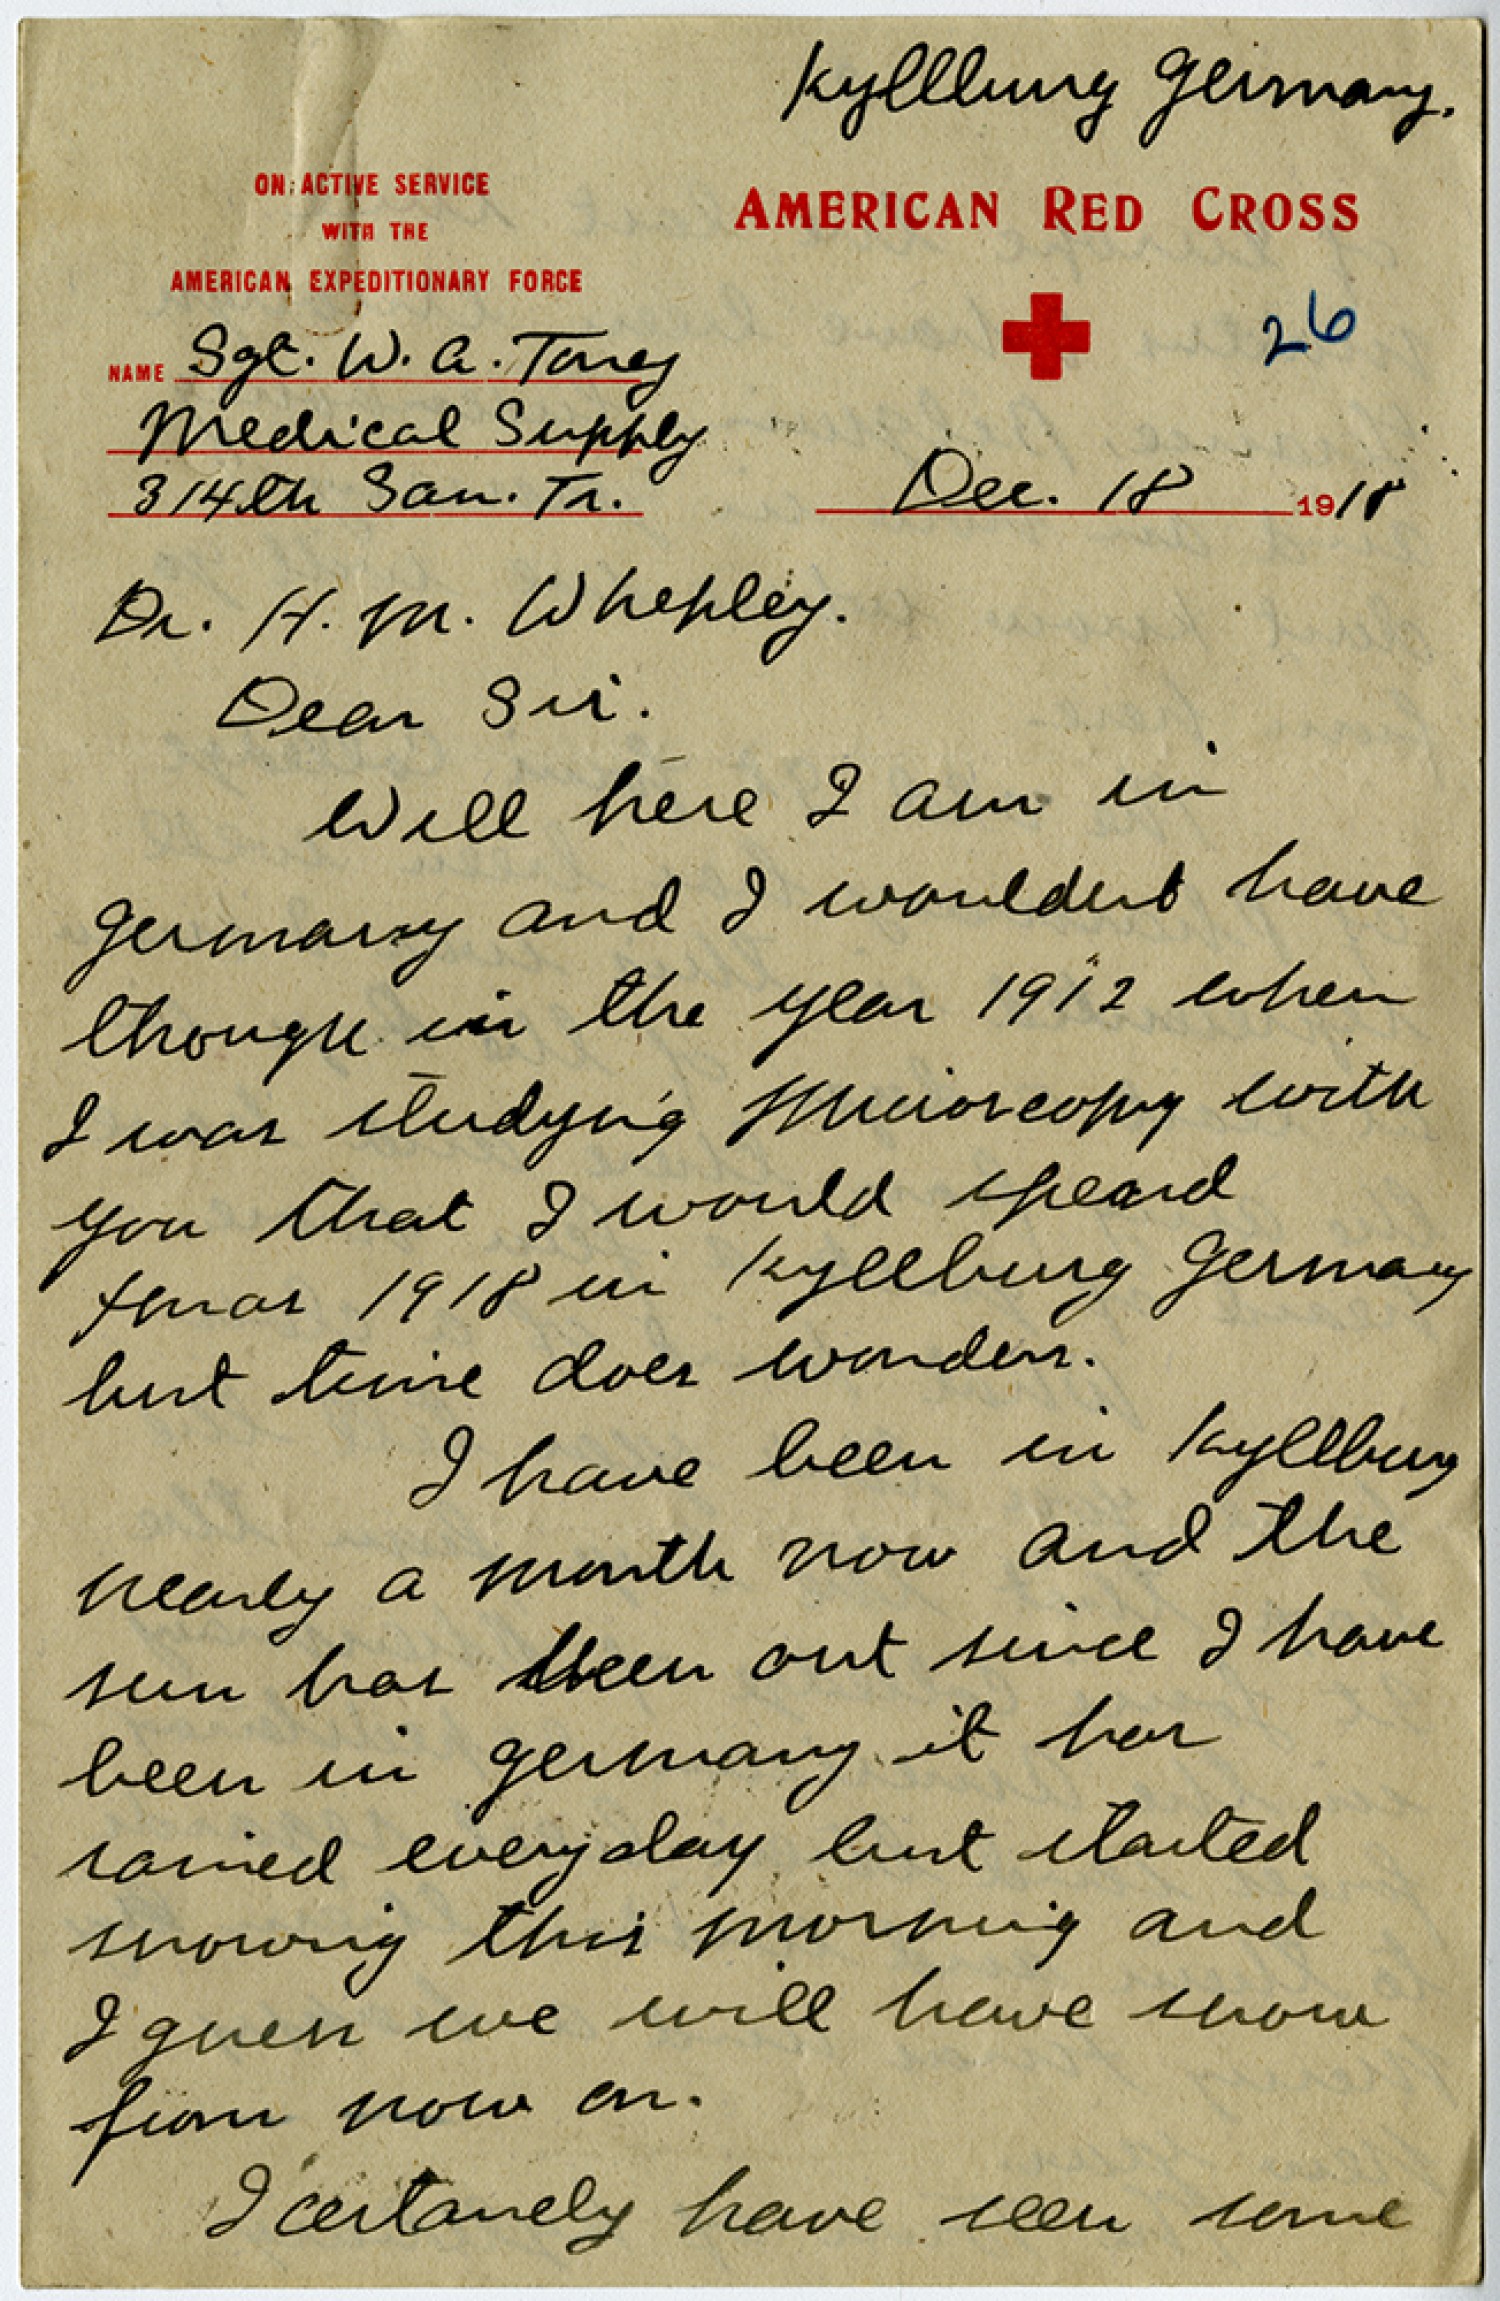 Kyllburg Germany.
ON ACTIVE SERVICE
WITH THE
AMERICAN EXPEDITIONARY FORCE
AMERICAN RED CROSS
26
NAME Sgt. W. A. Toney
Medical Supply
314th San. Tr.
Dec. 18 1918
Dr. H. M. Whepley.
Dear Sir.
Well here I am in
Germany and I wouldent have
though in the year 1912 when
I was studying Microscopy with
you that I would speand
Xmas 1918 in Kyllburg Germany
but time does wonders.
I have been in Kyllburg
nearly a month now and the
sun has been out since I have
been in Germany it has
rained everyday but started
snowing this morning and
I guess we will have snow
from now on.
I certanely have seen some